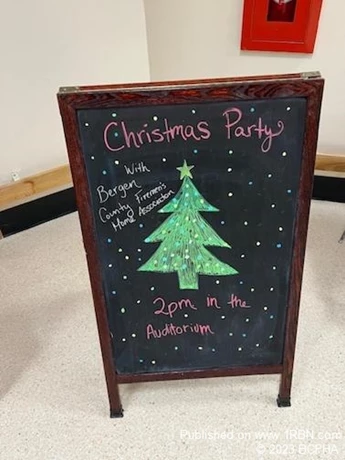 Christmas Party
With
Bergen
County Firemen's
Home Association
2pm in the
Auditorium
Published on www.1RBN.com
© 2023 BCFHA